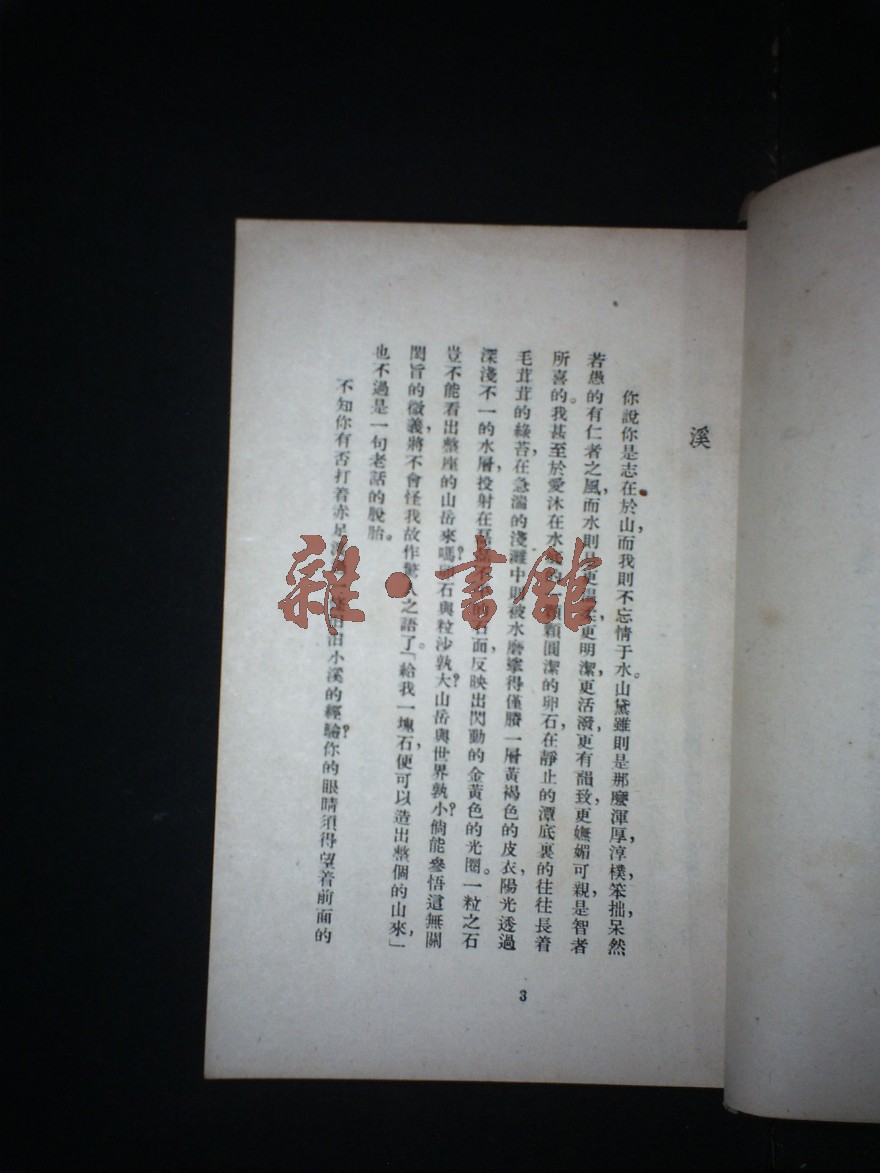 溪
你說你是志在於山，而我則不忘情于水。山黛雖則是那麼渾厚，淳樸，笨拙，呆然
若愚的有仁者之風，而水則更明潔，更活潑，更有韻致，更嫵媚可親，是智者
所喜的。我甚至於愛沐在水顆圓潔的卵石，在靜止的潭底裏的往往長着
毛茸茸的綠苔，在急湍的淺灘中則被水磨擦得僅賸一層黃褐色的皮衣，陽光透過
深淺不一的水層，投射在石面，反映出閃動的金黃色的光圈。一粒之石
豈不能看出整座的山岳來嗎？石與粒沙孰大？山岳與世界孰小？倘能參悟這無關
閎旨的微義，將不會怪我故作之語了。「給我一塊石，便可以造出整個的山來，」
也不過是一句老話的脫胎。
不知你有否打着赤足小溪的經驗？你的眼睛須得望着前面的
3
雜·書館